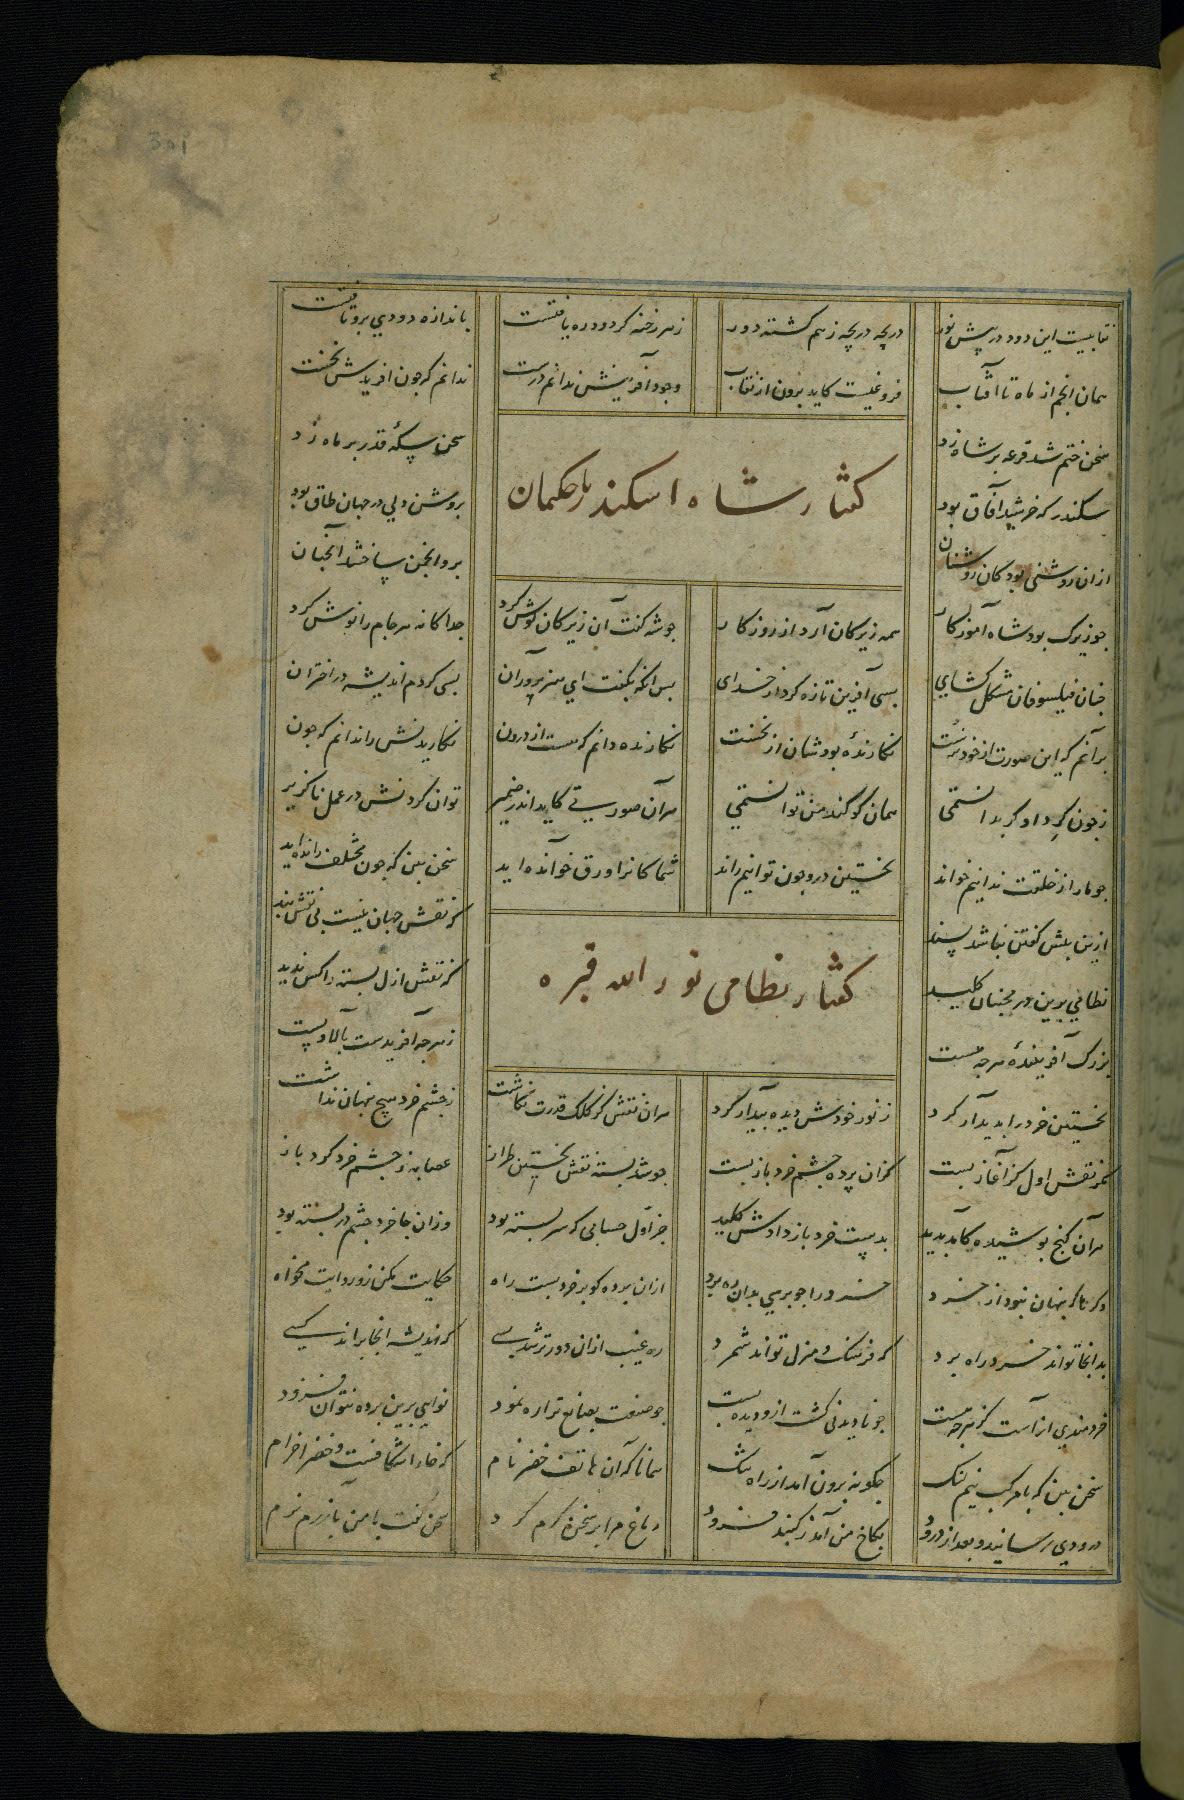 نقابیست این دود در پیش نور دریچه دریچه ز هم گشته دور ز هر رخنه کز دود ره یافتست باندازه دودی برو تافتست
همان انجم از ماه تا آفتاب فروغیست کاید برون از نقاب وجود آفرینش ندانم درست ندانم که چون آفریدش نخست
سخن ختم شد قرعه بر شاه زد سخن سکۀ قدر بر ماه زد
گفتار شاه اسکندر با حکیمان
سکندر که خرشید آفاق بود بروشن دلی در جهان طاق بود
ازان روشنی بود کان روشنان برو انجمن ساختند آنچنان
چو زیرک بود شاه آموزگار همه زیرکان آرد از روزگار چو شه گفت آن زیرکان گوش کرد جداگانه هر جام را نوش کرد
چنان فیلسوفان مشکل گشای بسی آفرین تازه کرد از خدای پس انکه بگفت ای هنر پروران بسی کردم اندیشه در اختران
برآنم که این صورت از خود نرست نگارندۀ بودشان از نخست نگارنده دانم که هست از درون نگاریدنش را ندانم که چون
ز چون کرد او گر بدانستمی همان کو کند من توانستمی هر آن صورتی کاید اندر ضمیر توان کردنش در عمل ناگزیر
چو ما راز خلقت ندانیم خواند نخستین درو چون توانیم راند شما کاسمانرا ورق خوانده اید سخن بین که چون مختلف رانده اید
ازین بیش گفتن نباشد پسند که نقش جهان نیست بی نقش بند
گفتار نظامی نور الله قبره
نظامی برین در مجنبان کلید که نقش ازل بسته را کس ندید
بزرگ آفرینندۀ هرچه هست ز هرچه آفریدست بالا و پست
نخستین خرد را پدیدار کرد ز نور خودش دیده بیدار کرد هران نقش کز کلک قدرت نگاشت ز چشم خرد هیچ پنهان نداشت
مگر نقش اول کز آغاز بست کزان پرده چشم خرد باز بست چو شد بسته نقش نخستین طراز عصابه ز چشم خرد کرد باز
هر آن گنج پوشیده کآمد پدید بدست خرد باز دادش کلید جز اول حسابی که سربسته بود وزان جا خرد چشم در بسته بود
دگرها که پنهان نبود از خرد خرد را چو پرسی بدان ره برد ازان پرده کو بر خرد بست راه حکایت مکن زو روایت مخواه
بدانجا تواند خرد راه برد که فرسنگ و منزل تواند شمرد ره غیب ازان دورتر شد بسی که اندیشه انجا براند کسی
خردمندی آنراست کز هرچه هست چو نادیدنی گشت ازو دیده بست چو صنعت بصانع ترا ره نمود نوایی برین پرده نتوان فزود
سخن بین که با مرکب نیم لنگ چگونه برون آمد از راه تنگ همانا که آن هاتف خضر نام که خارا شکافست و خضرا خرام
درودی رسانید و بعد از درود بکاخ من آمد ز گنبد فرود دماغ مرا بر سخن گرم کرد سخن گفت با من بازرم نرم